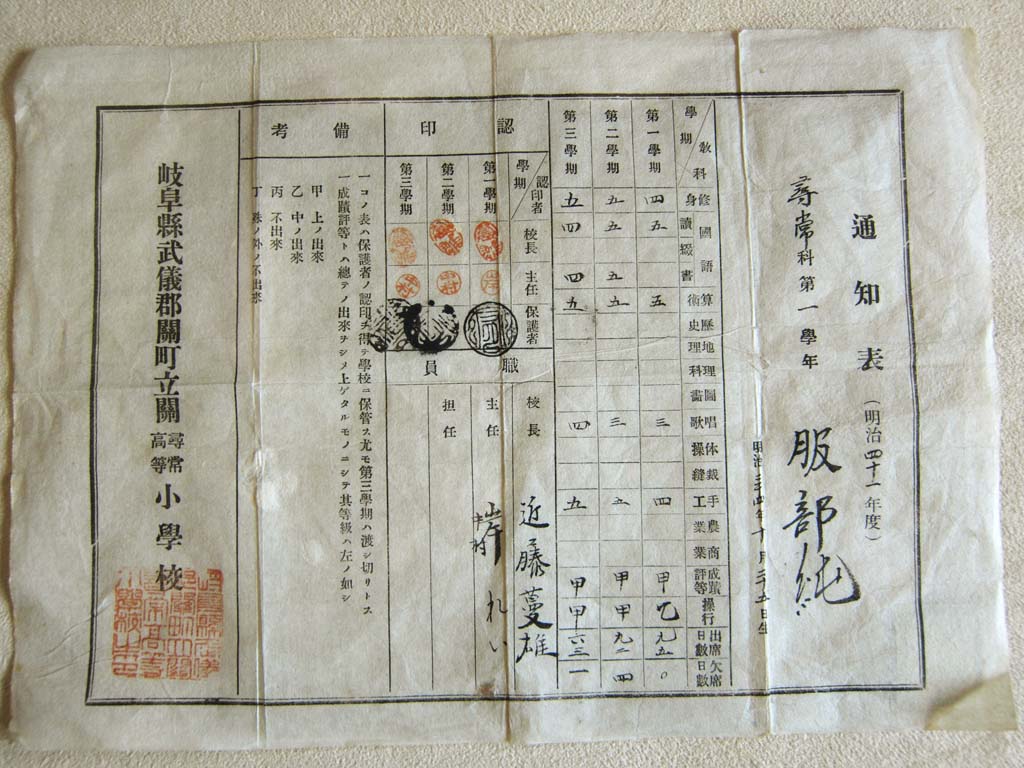 通知表（明治四十一年度）
尋常科第一學年 服部純
明治三四年十月二五日生
教科 修身 國語 讀 綴 書 算術 歷史 地理 理科 圖畫 唱歌 体操 裁縫 手工 農業 商業 成蹟評等 操行 出席日數 欠席日數
學期
第一學期 四 五 五 三 四 甲 乙 九五 〇
第二學期 五 五 五 五 三 五 甲 甲 九二 四
第三學期 五 四 四 五 四 五 甲 甲 六三 一
認印
認印者 校長 主任 保護者
學期
第一學期
第二學期
第三學期
職員
校長 近藤蔓雄
主任 岸れい
担任
備考
一コノ表ハ保護者ノ認印ヲ得テ學校ニ保管ス尤モ第三學期ハ渡シ切リトス
一成蹟評等トハ總テノ出來ヲシメ上ゲタルモノニシテ其等級ハ左ノ如シ
甲 上ノ出來
乙 中ノ出來
丙 不出來
丁 殊ノ外ノ不出來
岐阜縣武儀郡關町立關尋常高等小學校